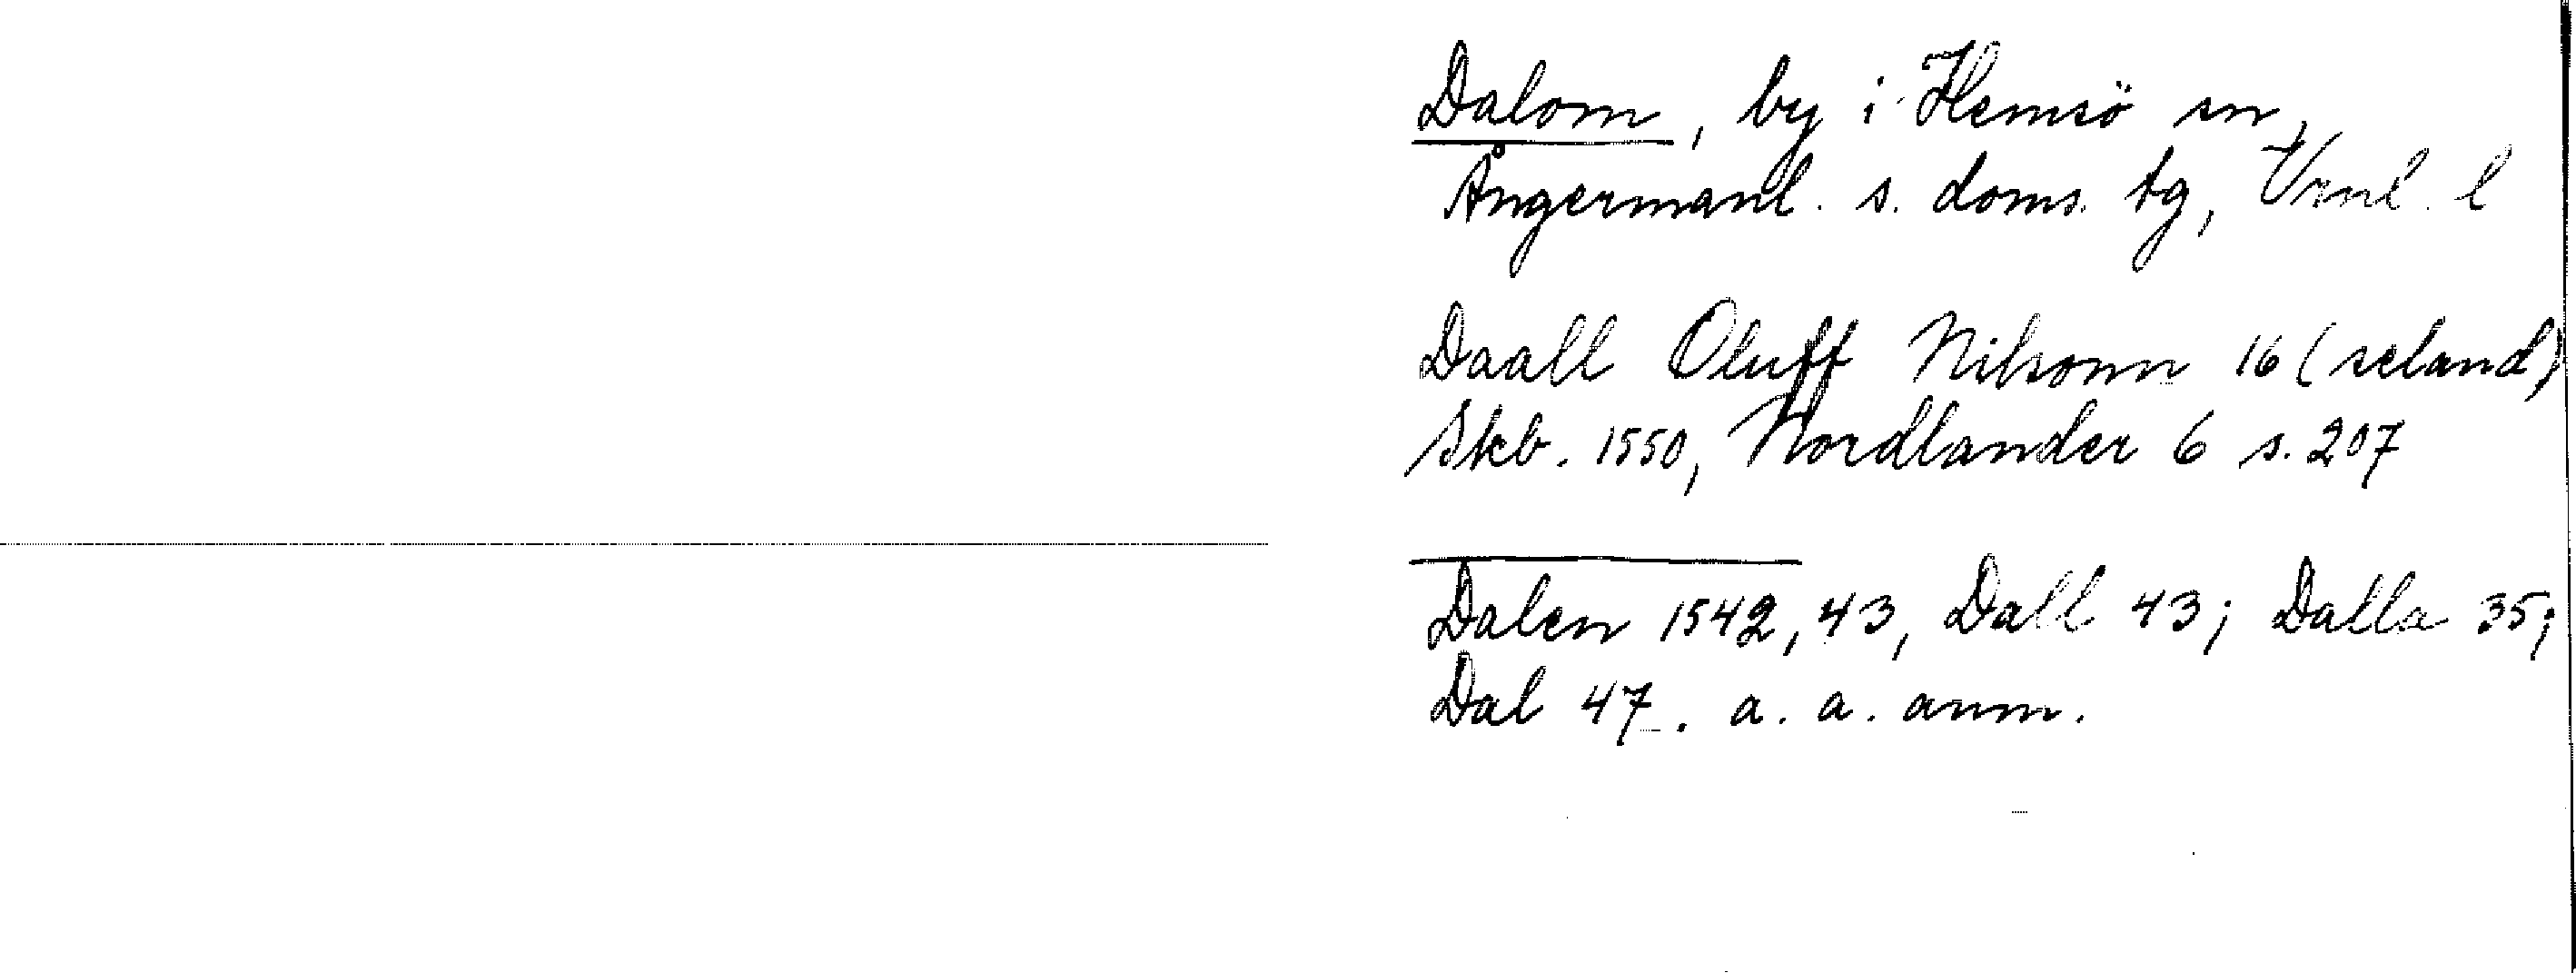 Dalom, by i Hemsö sn,
Ångermanl. s. doms. tg, Vrnl. l
Daall Oluff Nilsonn 16 (seland)
Skb. 1550, Nordlander 6 s. 207
Dalen 1542, 43, Dall 43; Dalla 35;
Dal 47. a. a. anm.